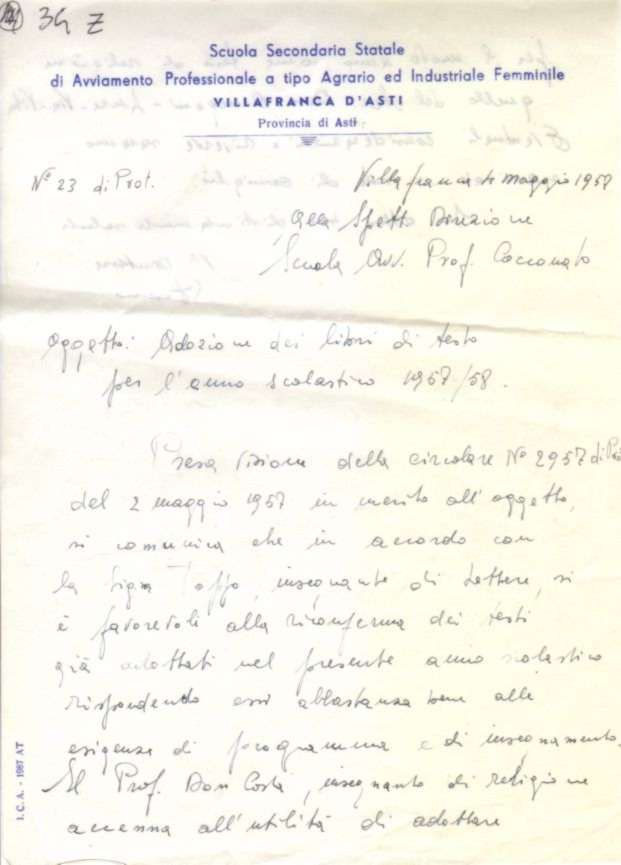 34 Z
Scuola Secondaria Statale
di Avviamento Professionale a tipo Agrario ed Industriale Femminile
VILLAFRANCA D'ASTI
Provincia di Asti
N° 23 di Prot.
Villafranca 4 maggio 1957
Alla Spett. Direzione
Scuola Avv. Prof. Cocconato
Oggetto: Adozione dei libri di testo
per l'anno scolastico 1957/58.
Presa visione della circolare N° 2957 di
del 2 maggio 1957 in merito all'oggetto,
si comunica che in accordo con
la Sig.ra Toppo, insegnante di Lettere, si
è favorevoli alla riconferma dei testi
già adottati nel presente anno scolastico
rispondendo essi abbastanza bene alle
esigenze di programma e di insegnamento.
Il Prof. Don Costa, insegnante di religione
accenna all'utilità di adottare
I.C.A. - 1967 AT